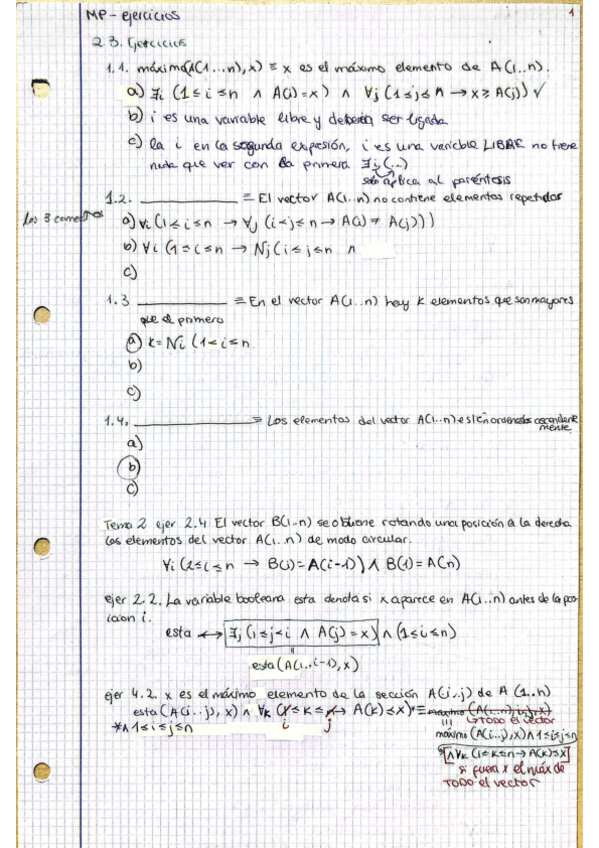 MP - ejercicios
1
2.3. Ejercicios
1.1. máximo(A(1..n), x) ≡ x es el máximo elemento de A(1..n).
a) ∃i (1 ≤ i ≤ n ∧ A(i) = x) ∧ ∀j (1 ≤ j ≤ n → x ≥ A(j)) ✓
b) i es una variable libre y debería ser ligada
c) la i en la segunda expresión, i es una variable LIBRE no tiene
nada que ver con la primera ∃i(...)
solo aplica al paréntesis
1.2. ____________ ≡ El vector A(1..n) no contiene elementos repetidos
los 3 correctos
a) ∀i (1 ≤ i ≤ n → ∀j (i < j ≤ n → A(i) ≠ A(j)))
b) ∀i (1 ≤ i ≤ n → Nj (1 ≤ j ≤ n ∧
c)
1.3 ____________ ≡ En el vector A(1..n) hay k elementos que son mayores
que el primero
a) k = Ni (1 < i ≤ n
b)
c)
1.4. ____________ ≡ Los elementos del vector A(1..n) están ordenados ascendente
mente.
a)
b)
c)
Tema 2 ejer 2.4 El vector B(1..n) se obtiene rotando una posición a la derecha
los elementos del vector A(1..n) de modo circular.
∀i (2 ≤ i ≤ n → B(i) = A(i-1)) ∧ B(1) = A(n)
ejer 2.2. La variable booleana esta denota si x aparece en A(1..n) antes de la po
sicion i.
esta ↔ ∃j (1 ≤ j < i ∧ A(j) = x) ∧ (1 ≤ i ≤ n)
=
esta (A(1..i-1), x)
ejer 4.2. x es el máximo elemento de la sección A(i..j) de A(1..n)
esta (A(i..j), x) ∧ ∀k (1 ≤ k ≤ n → A(k) ≤ x) * ≡ máximo (A(1..n), i, j, x)
* ∧ 1 ≤ i ≤ j ≤ n
i
j
↳ TODO el vector
máximo (A(i..j), x) ∧ 1 ≤ i ≤ j ≤ n
∧ ∀k (1 ≤ k ≤ n → A(k) ≤ x)
si fuera x el máx de
TODO el vector